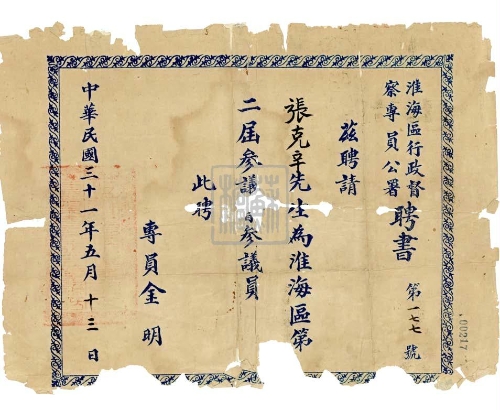 淮海區行政督
察專員公署
聘書
第一七七號
00217
茲聘請
張克辛先生為淮海區第
二屆參議會參議員
此聘
專員金明
中華民國三十一年五月十三日